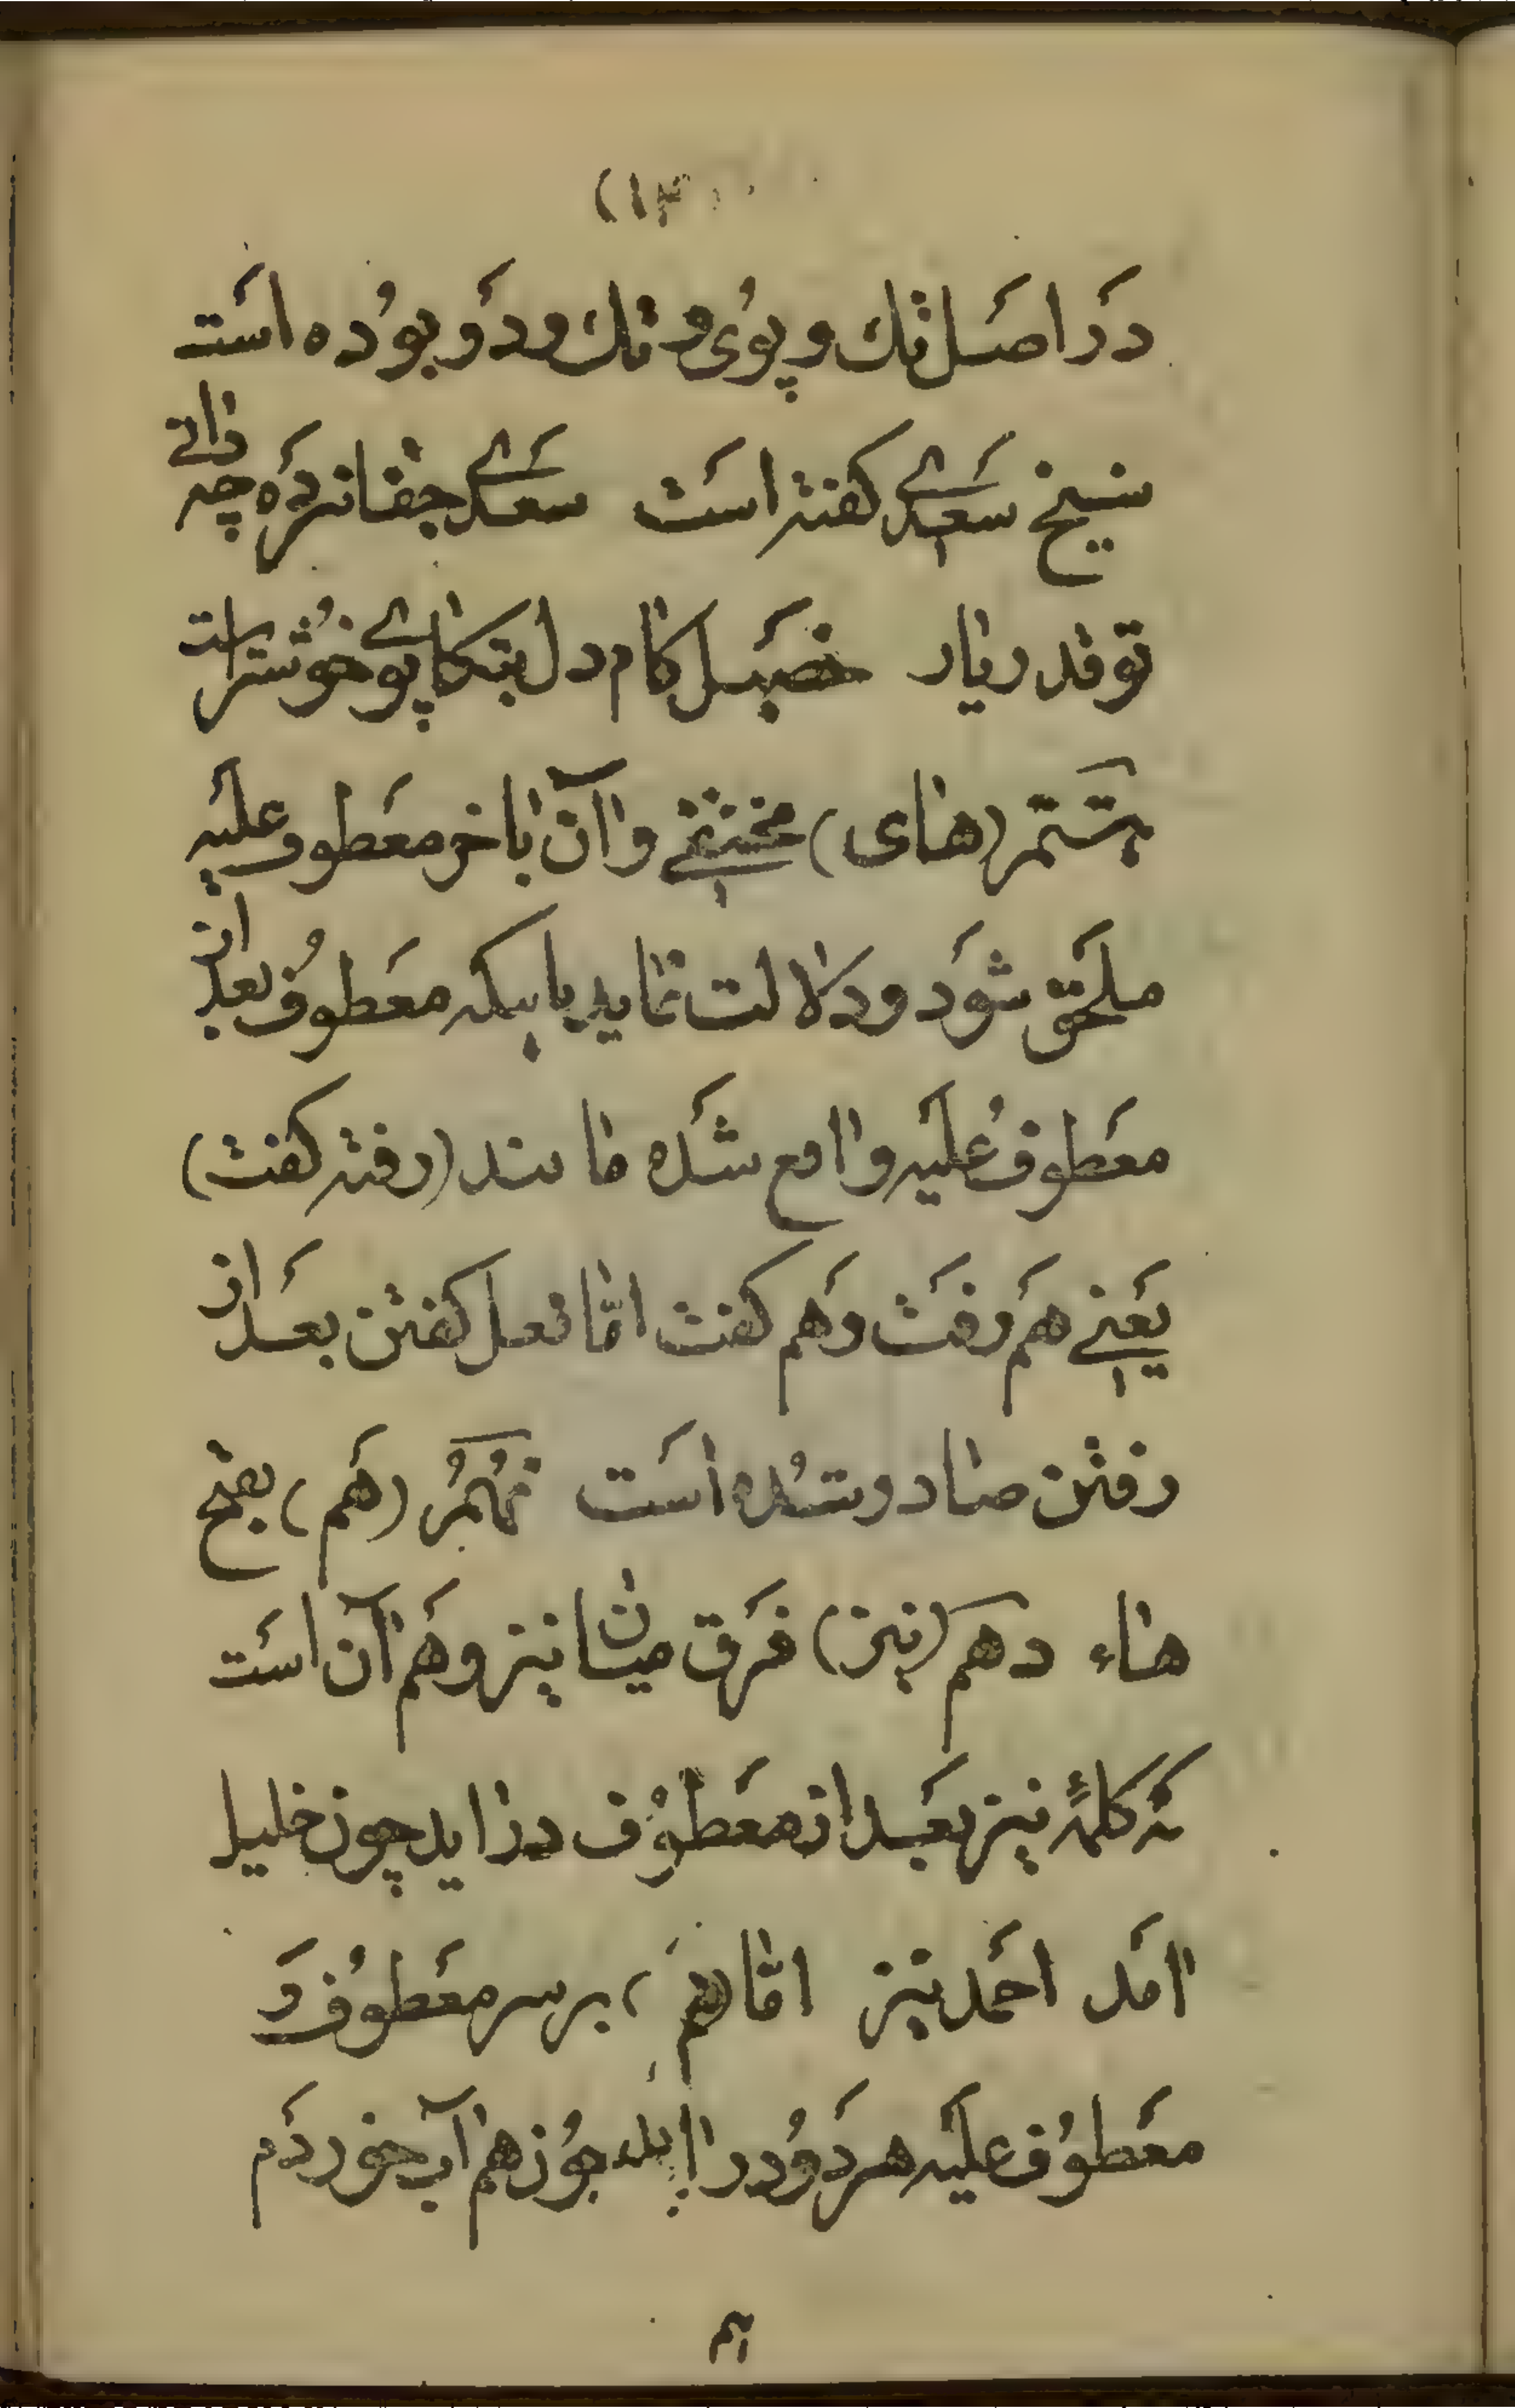 (۱۳
دَر اصَل تك و پوُی و تك و دَو بوُده اسَت
شیخ سَعدی کفته اسَت سعَدی جفا نبرَده چه دانی
تو قدر یار تحصیل کام دل بتکاپوی خوُشتر است
هشتم (های) مختفی و آن باخر معَطوف علیَه
ملحَق شوَد و دَلالت نماید باینکه معَطوُف بعد از
معَطوف علیَه واقع شدَه مانند (رفته کفت)
یعَنی هَم رفَت و هَم کفت امّا فعل کفتن بعَد از
رفتن صادر شُده اسَت نُهُم (هَم) بفتح
هاء دهم (نیز) فَرق میان نیز و هَم آن اسَت
که کلمهٔ نیز بعَد از معَطوُف در آید چون خلیل
آمَد احَمد نیز امّا (هَم) بر سر معَطوُف و
معَطوُف علیَه هر دَوُ در آید چوُن هَم آب خوردَم
هم